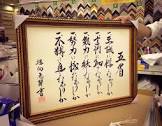 五省
一至誠に悖るなかりしか
一言行に恥づるなかりしか
一氣力に缺くるなかりしか
一努力に憾みなかりしか
一不精に亘るなかりしか